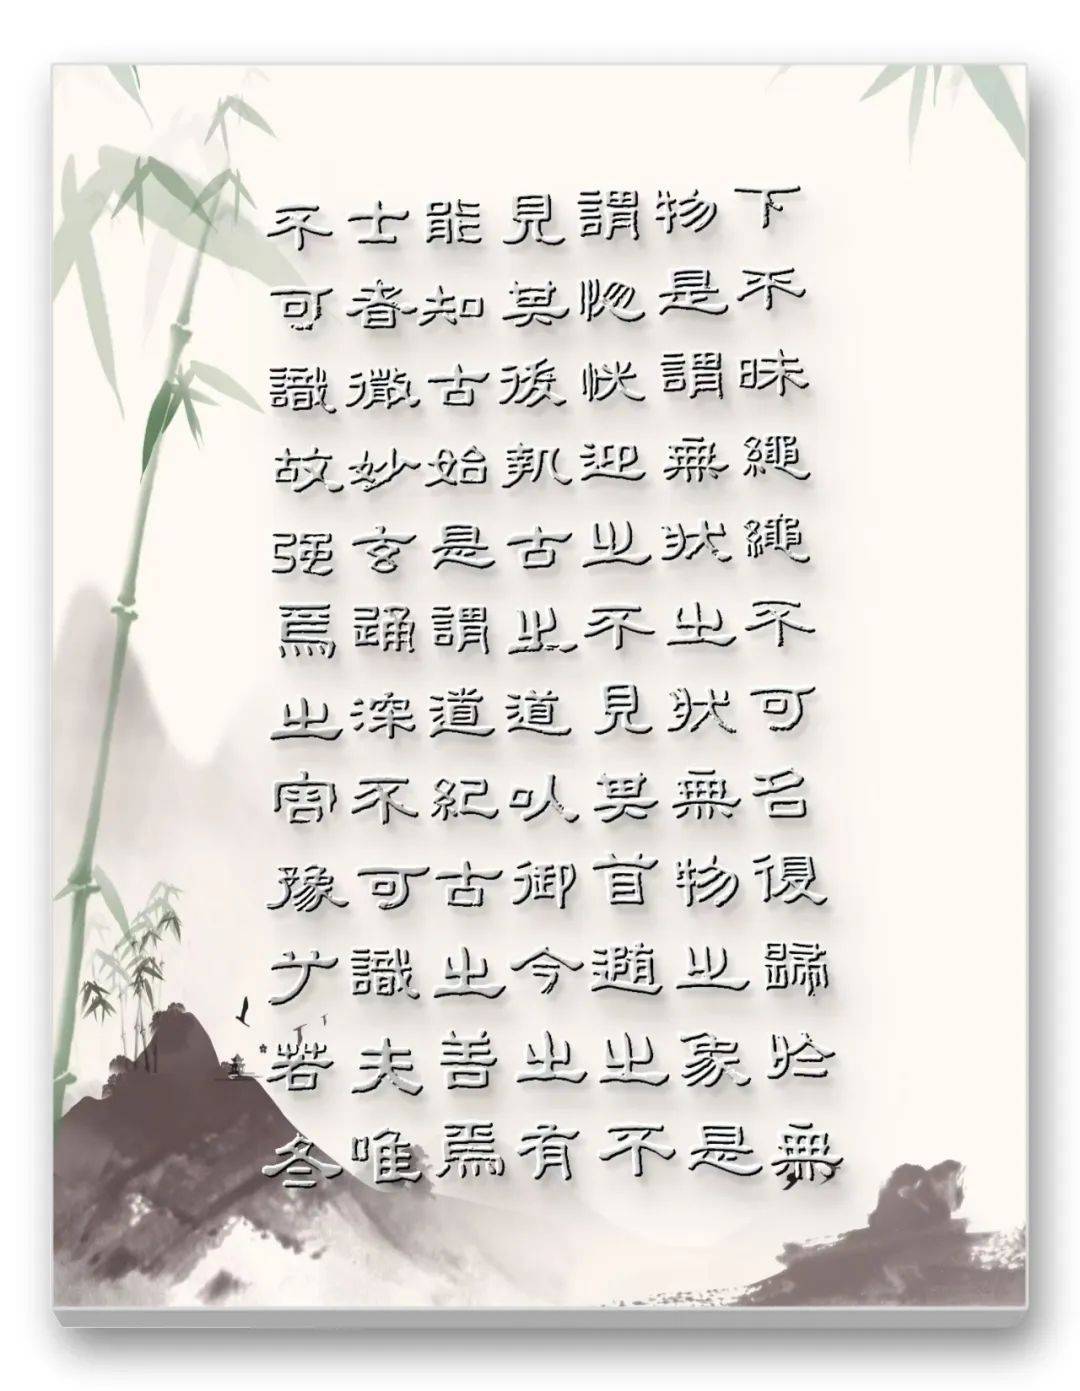 下不昧繩繩不可名復歸於無
物是謂無狀之狀無物之象是
謂惚恍迎之不見其首隨之不
見其後執古之道以御今之有
能知古始是謂道紀古之善爲
士者微妙玄通深不可識夫唯
不可識故强爲之容豫兮若冬